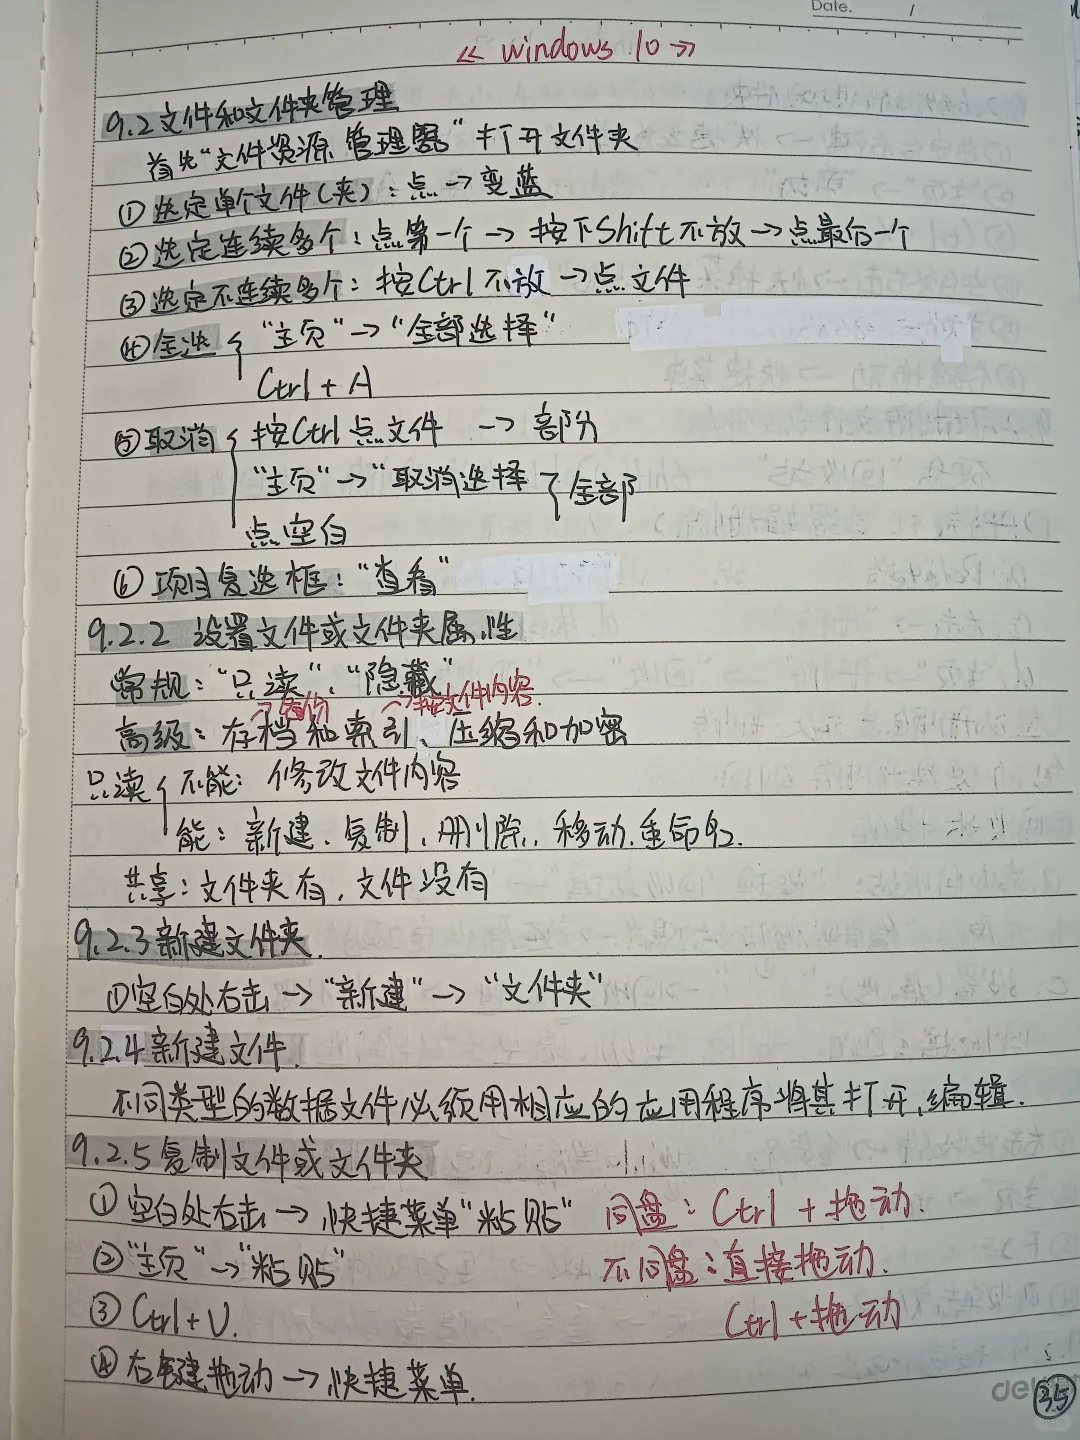 Date. /
《 windows 10 》
9.2 文件和文件夹管理
首先"文件资源管理器"打开文件夹
①选定单个文件(夹):点→变蓝
②选定连续多个:点第一个→按下Shift不放→点最后一个
③选定不连续多个:按Ctrl不放→点文件
④全选{"主页"→"全部选择"
Ctrl + A
⑤取消{按Ctrl点文件 → 部分
"主页"→"取消选择 }全部
点空白
⑥项目复选框:"查看"
9.2.2 设置文件或文件夹属性
常规:"只读"、"隐藏"
→备份 →按文件内容.
高级:存档和索引、压缩和加密
只读{不能:修改文件内容
能:新建、复制、删除、移动、重命名.
共享:文件夹有,文件没有
9.2.3 新建文件夹.
①空白处右击→"新建"→"文件夹"
9.2.4 新建文件.
不同类型的数据文件必须用相应的应用程序将其打开、编辑.
9.2.5 复制文件或文件夹
①空白处右击→快捷菜单"粘贴" 同盘:Ctrl + 拖动.
②"主页"→"粘贴" 不同盘:直接拖动.
③Ctrl+V. Ctrl+拖动
④右键拖动→快捷菜单.
35